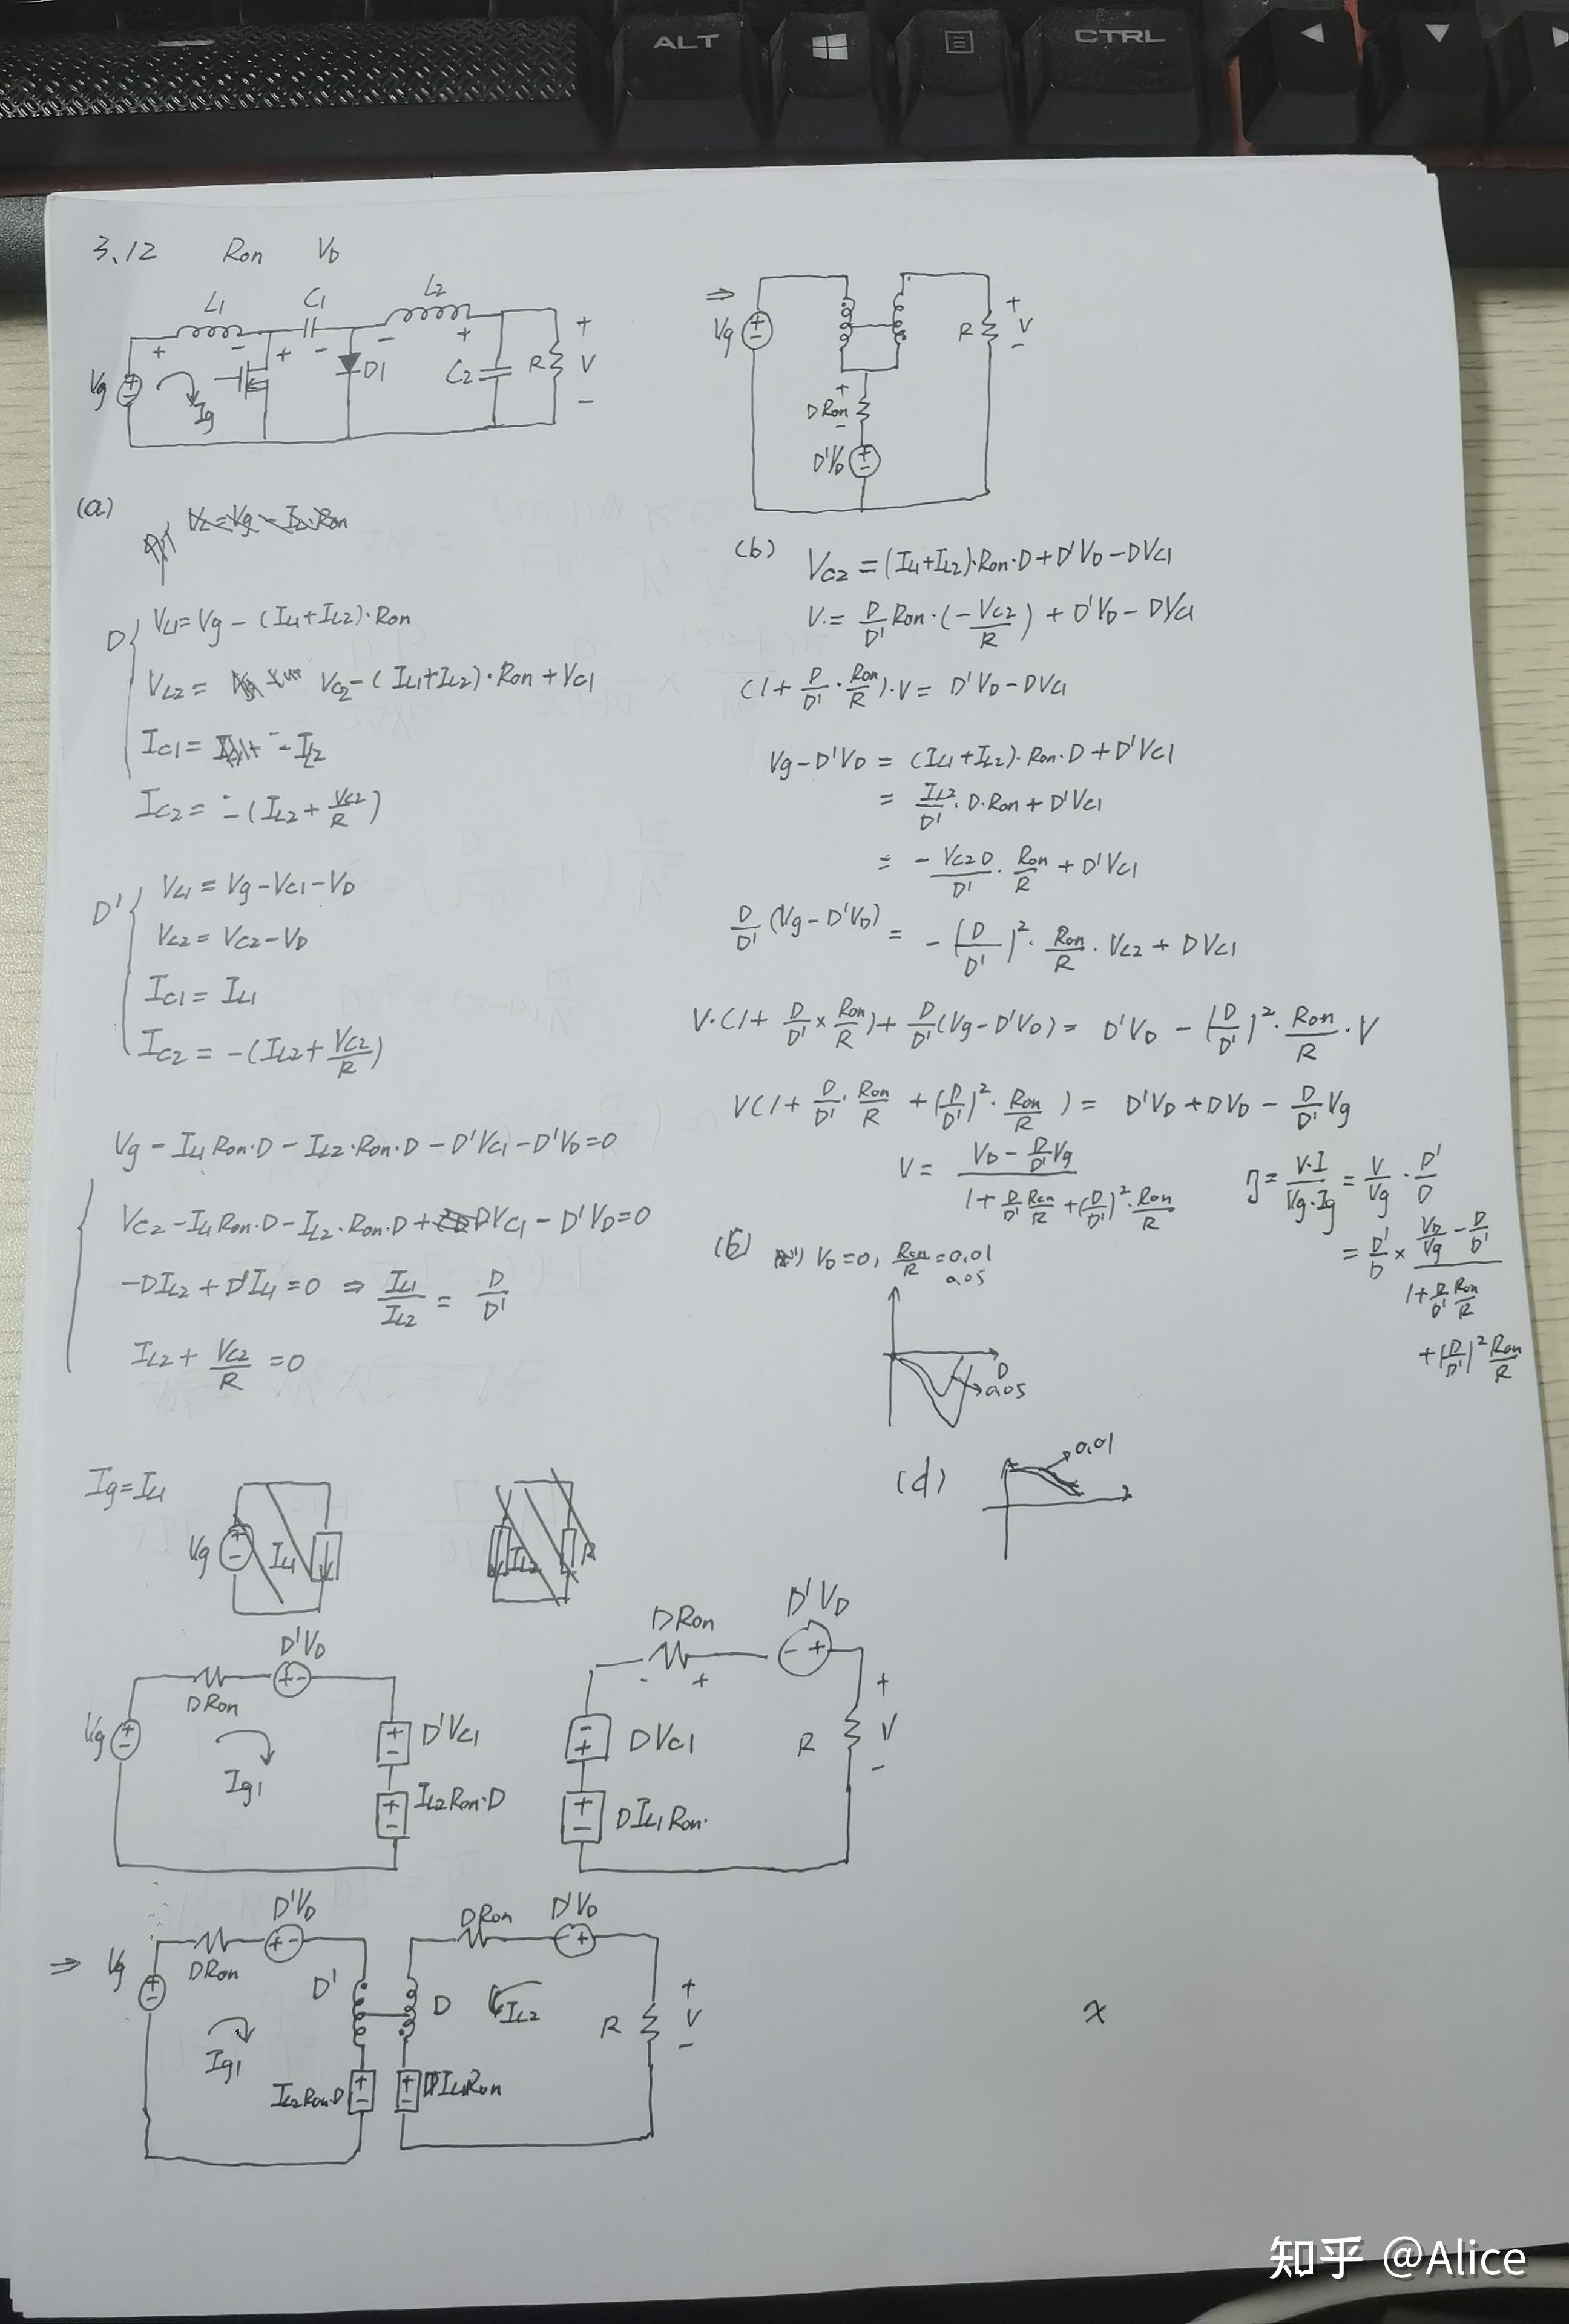 ALT
CTRL
3.12 Ron VD
L1 C1 L2
Vg Ig D1 C2 R + V -
(a)
D { VL1 = Vg - (IL1+IL2)·Ron
VL2 = VC2 - (IL1+IL2)·Ron + VC1
IC1 = -IL2
IC2 = -(IL2 + VC2/R)
D' { VL1 = Vg - VC1 - VD
VL2 = VC2 - VD
IC1 = IL1
IC2 = -(IL2 + VC2/R)
Vg - IL1 Ron·D - IL2·Ron·D - D'VC1 - D'VD = 0
VC2 - IL1 Ron·D - IL2·Ron·D + DVC1 - D'VD = 0
-DIL2 + D'IL1 = 0 ⇒ IL1/IL2 = D/D'
IL2 + VC2/R = 0
Ig = IL1
Vg IL1 IL2 R
D'VD DRon
Vg Ig1 D'VC1
IL2Ron·D
DRon D'VD
DVC1 R + V -
DIL1Ron·
⇒ Vg DRon D'VD D' D DRon D'VD
Ig1 IL2 R + V -
IL2Ron·D DIL1Ron
⇒ Vg R + V -
DRon
D'VD
(b) VC2 = (IL1+IL2)·Ron·D + D'VD - DVC1
V = D/D' Ron·(-VC2/R) + D'VD - DVC1
(1 + D/D' · Ron/R)·V = D'VD - DVC1
Vg - D'VD = (IL1+IL2)·Ron·D + D'VC1
= IL2/D' · D·Ron + D'VC1
= - VC2D/D' · Ron/R + D'VC1
D/D' (Vg - D'VD) = -(D/D')² · Ron/R · VC2 + DVC1
V·(1 + D/D' × Ron/R) + D/D' (Vg - D'VD) = D'VD - (D/D')² · Ron/R · V
V(1 + D/D' · Ron/R + (D/D')² · Ron/R) = D'VD + DVD - D/D' Vg
V = (VD - D/D' Vg) / (1 + D/D' Ron/R + (D/D')² · Ron/R)
η = V·I/Vg·Ig = V/Vg · D'/D
= D'/D × (VD/Vg - D/D') / (1 + D/D' Ron/R
+ (D/D')² Ron/R
VD = 0, Ron/R = 0.01
0.05
D
0.05
(d) 0.01
x
知乎 @Alice